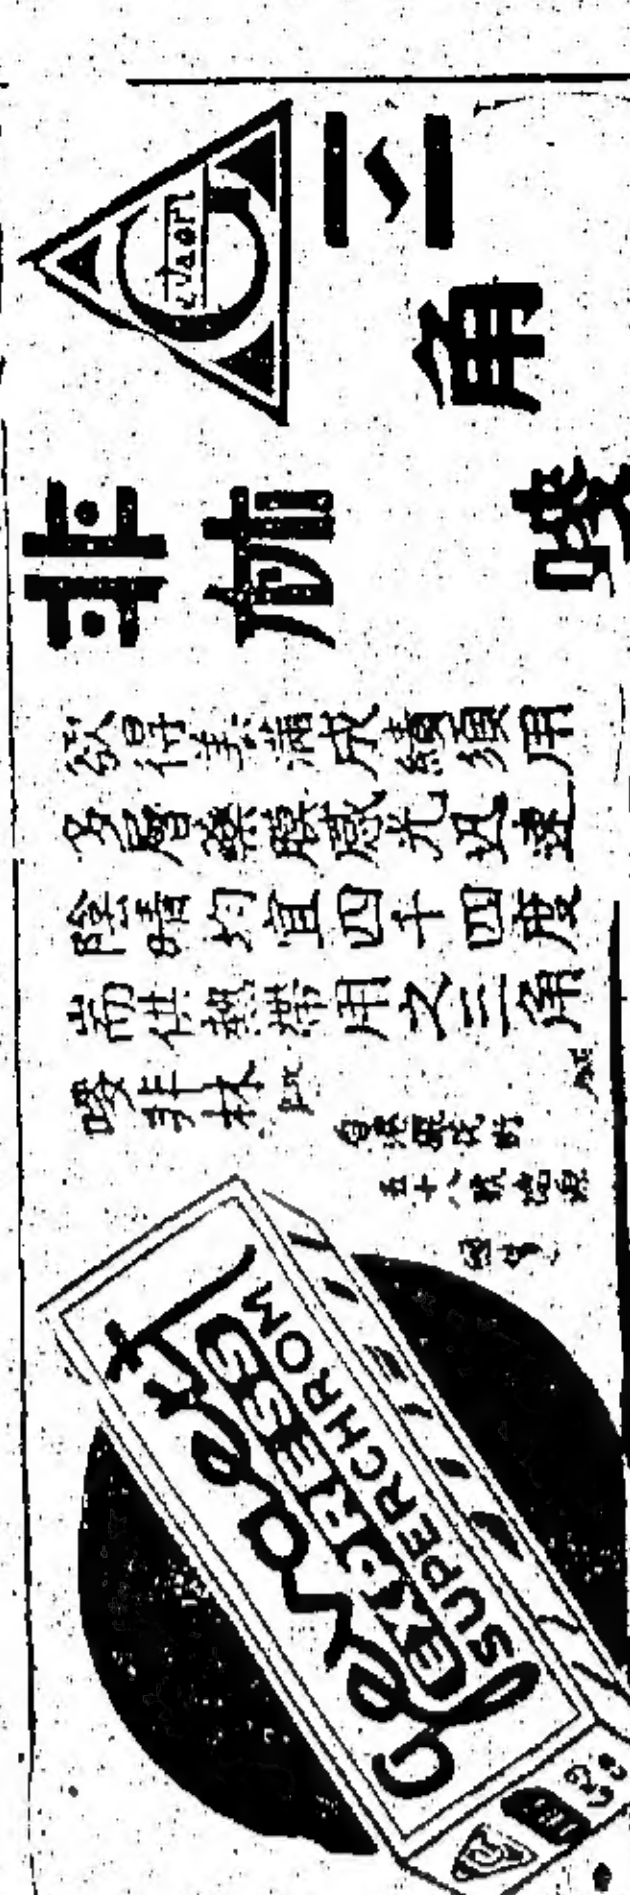 Gevaert
三角嘜
非林
欲得美滿成績須用
多層藥膜感光迅速
陰晴均宜四千四度
而供熱帶用之三角
嘜非林
五十八號
Gevaert
EXPRESS
SUPERCHROM